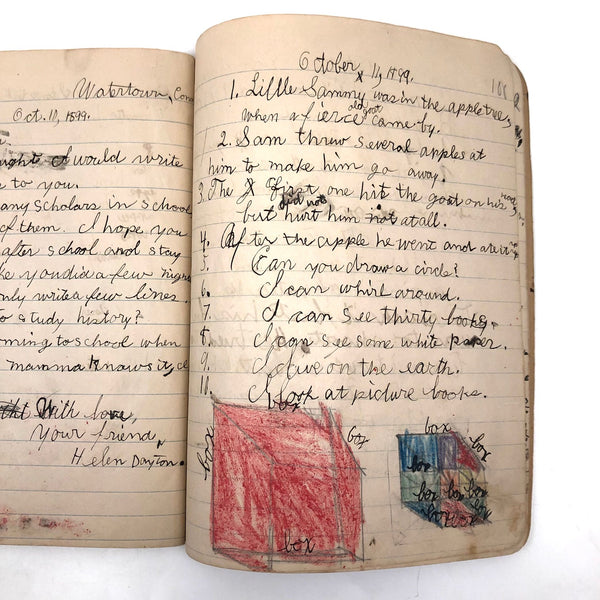 Watertown, Conn
Oct. 11, 1899.
I would write
to you.
any Scholars in school
of them. I hope you
after school and stay
you did a few nights
only write a few lines.
to study history?
coming to school when
mamma knows it,
With love,
Your friend,
Helen Dayton.
October 11, 1899.
1. Little Sammy was in the apple tree,
when a fierce old goat came by.
2. Sam threw several apples at
him to make him go away.
3. The first one hit the goat on his
but did not hurt him not at all.
4. After the apple he went and ate it
5. Can you draw a circle?
6. I can whirl around.
7. I can see thirty books.
8. I can see some white paper.
9. I live on the earth.
10. I look at picture books.
box
box
box
box
box
box
box
box
box
box
box
box